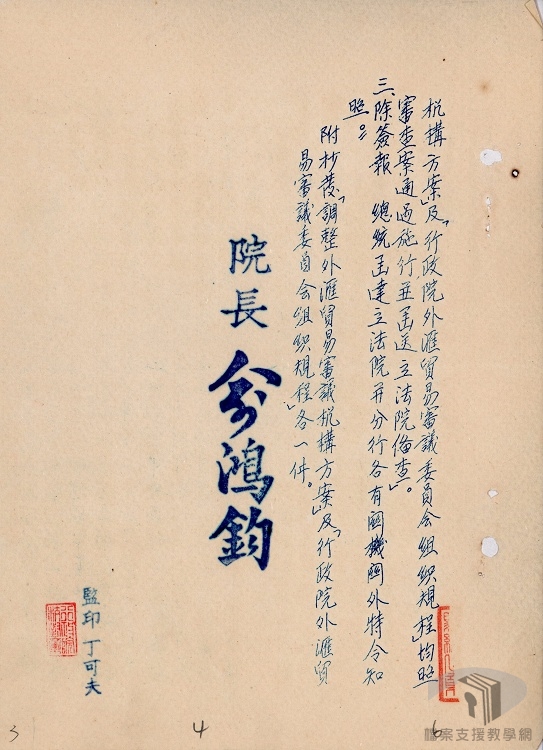 機構方案」及「行政院外滙貿易審議委員会組织規程」均照
審查案通過施行並函送立法院備查」。
三、除簽報　總統函達立法院并分行各有関機関外特令知
照。
附抄发「調整外滙貿易審議機構方案」及「行政院外滙貿
易審議委員会組织規程」各一件。
院長
俞鴻鈞
監印 丁可夫
3
4
6
檔案支援教學網